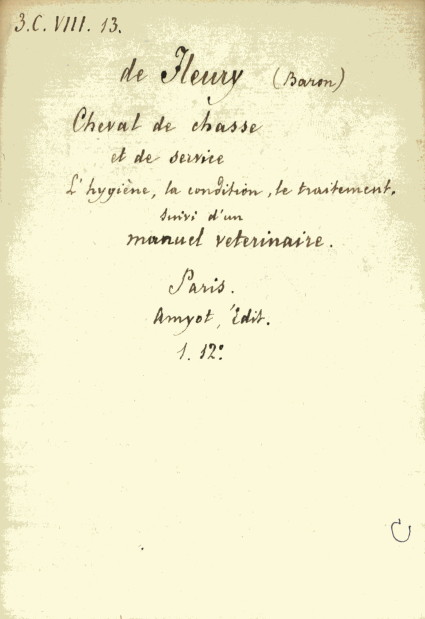 3.C. VIII. 13.
de Fleury (Baron)
Cheval de chasse
et de service
L'hygiène, la condition, le traitement.
suivi d'un
manuel veterinaire.
Paris.
Amyot, Edit.
1. 12°